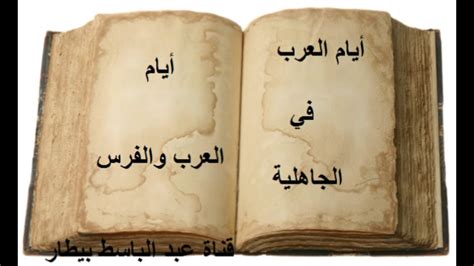 أيام العرب
في
الجاهلية
أيام
العرب والفرس
قناة عبد الباسط بيطار